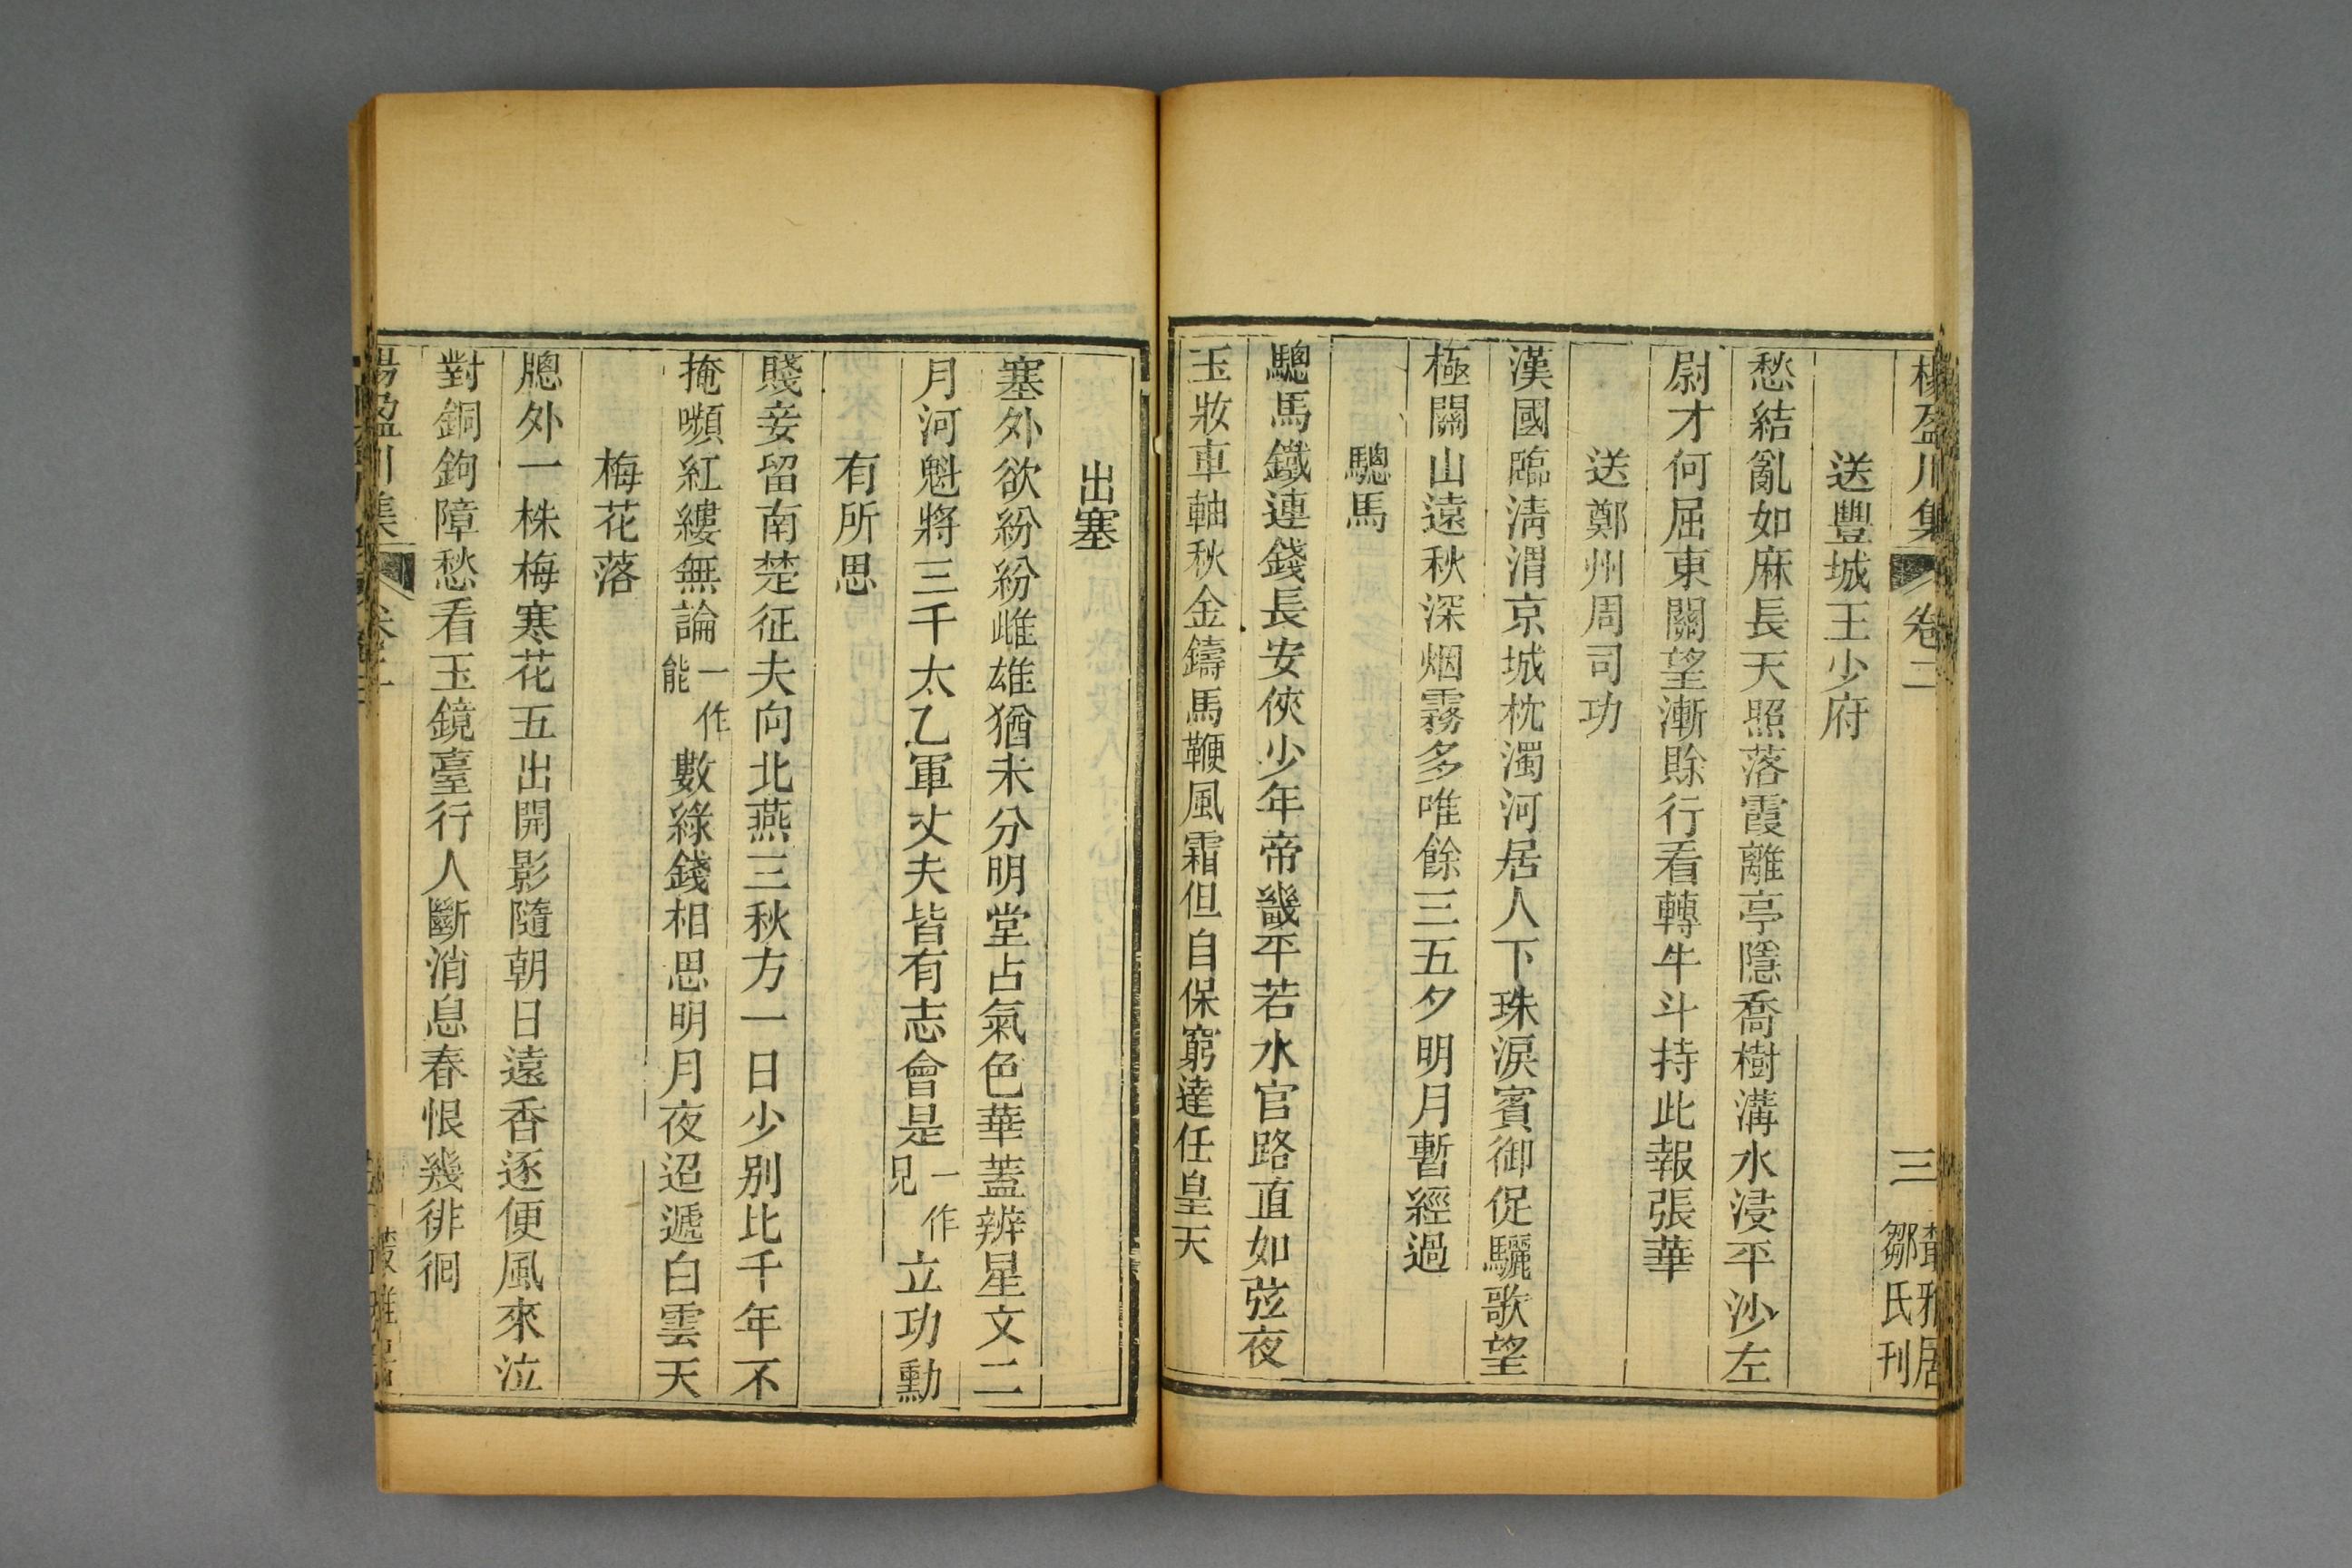 楊盈川集 卷二 三 叢雅居鄒氏刊
送豐城王少府
愁結亂如麻長天照落霞離亭隱喬樹溝水浸平沙左
尉才何屈東關望漸賒行看轉牛斗持此報張華
送鄭州周司功
漢國臨清渭京城枕濁河居人下珠淚賓御促驪歌望
極關山遠秋深烟霧多唯餘三五夕明月暫經過
驄馬
驄馬鐵連錢長安俠少年帝畿平若水官路直如弦夜
玉妝車軸秋金鑄馬鞭風霜但自保窮達任皇天
出塞
塞外欲紛紛雌雄猶未分明堂占氣色華蓋辨星文二
月河魁將三千太乙軍丈夫皆有志會是一作見立功勳
有所思
賤妾留南楚征夫向北燕三秋方一日少别比千年不
掩嚬紅縷無論一作能數綠錢相思明月夜迢遞白雲天
梅花落
牕外一株梅寒花五出開影隨朝日遠香逐便風來泣
對銅鉤障愁看玉鏡臺行人斷消息春恨幾徘徊
楊盈川集